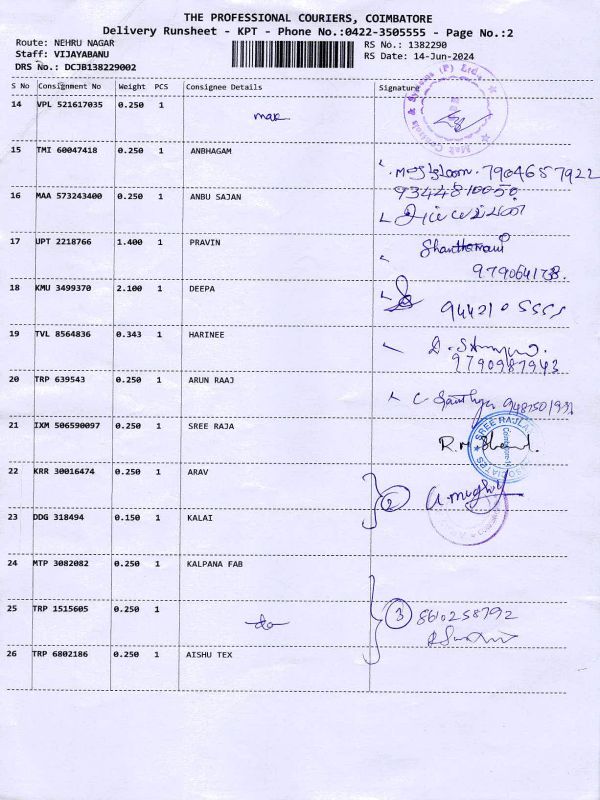 THE PROFESSIONAL COURIERS, COIMBATORE
Delivery Runsheet - KPT - Phone No.:0422-3505555 - Page No.:2
Route: NEHRU NAGAR
RS No.: 1382290
Staff: VIJAYABANU
RS Date: 14-Jun-2024
DRS No.: DCJB138229002
S No Consignment No Weight PCS Consignee Details Signature
14 VPL 521617035 0.250 1 mak
15 TMI 60047418 0.250 1 ANBHAGAM 7904657922
16 MAA 573243400 0.250 1 ANBU SAJAN 9344810050
17 UPT 2218766 1.400 1 PRAVIN
18 KMU 3499370 2.100 1 DEEPA 94421 05555
19 TVL 8564836 0.343 1 HARINEE 9790987943
20 TRP 639543 0.250 1 ARUN RAAJ
21 IXM 506590097 0.250 1 SREE RAJA
22 KRR 30016474 0.250 1 ARAV 2
23 DDG 318494 0.150 1 KALAI
24 MTP 3082082 0.250 1 KALPANA FAB
25 TRP 1515605 0.250 1 do 3 8610258792
26 TRP 6802186 0.250 1 AISHU TEX